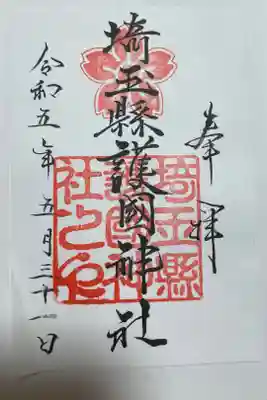 奉拝
埼玉縣護國神社
令和五年五月三十一日
埼玉縣
護國神
社之印